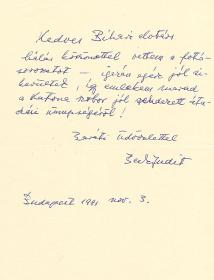 Kedves Bihari elvtárs
hálás köszönettel vettem a fotó-
sorozatot – igazán egész jól si-
kerültek, így emlékem marad
a Katona szobor jól rendezett áta-
dási ünnepségéről!
Baráti Üdvözlettel
Bedő Judit
Budapest 1981 nov. 3.